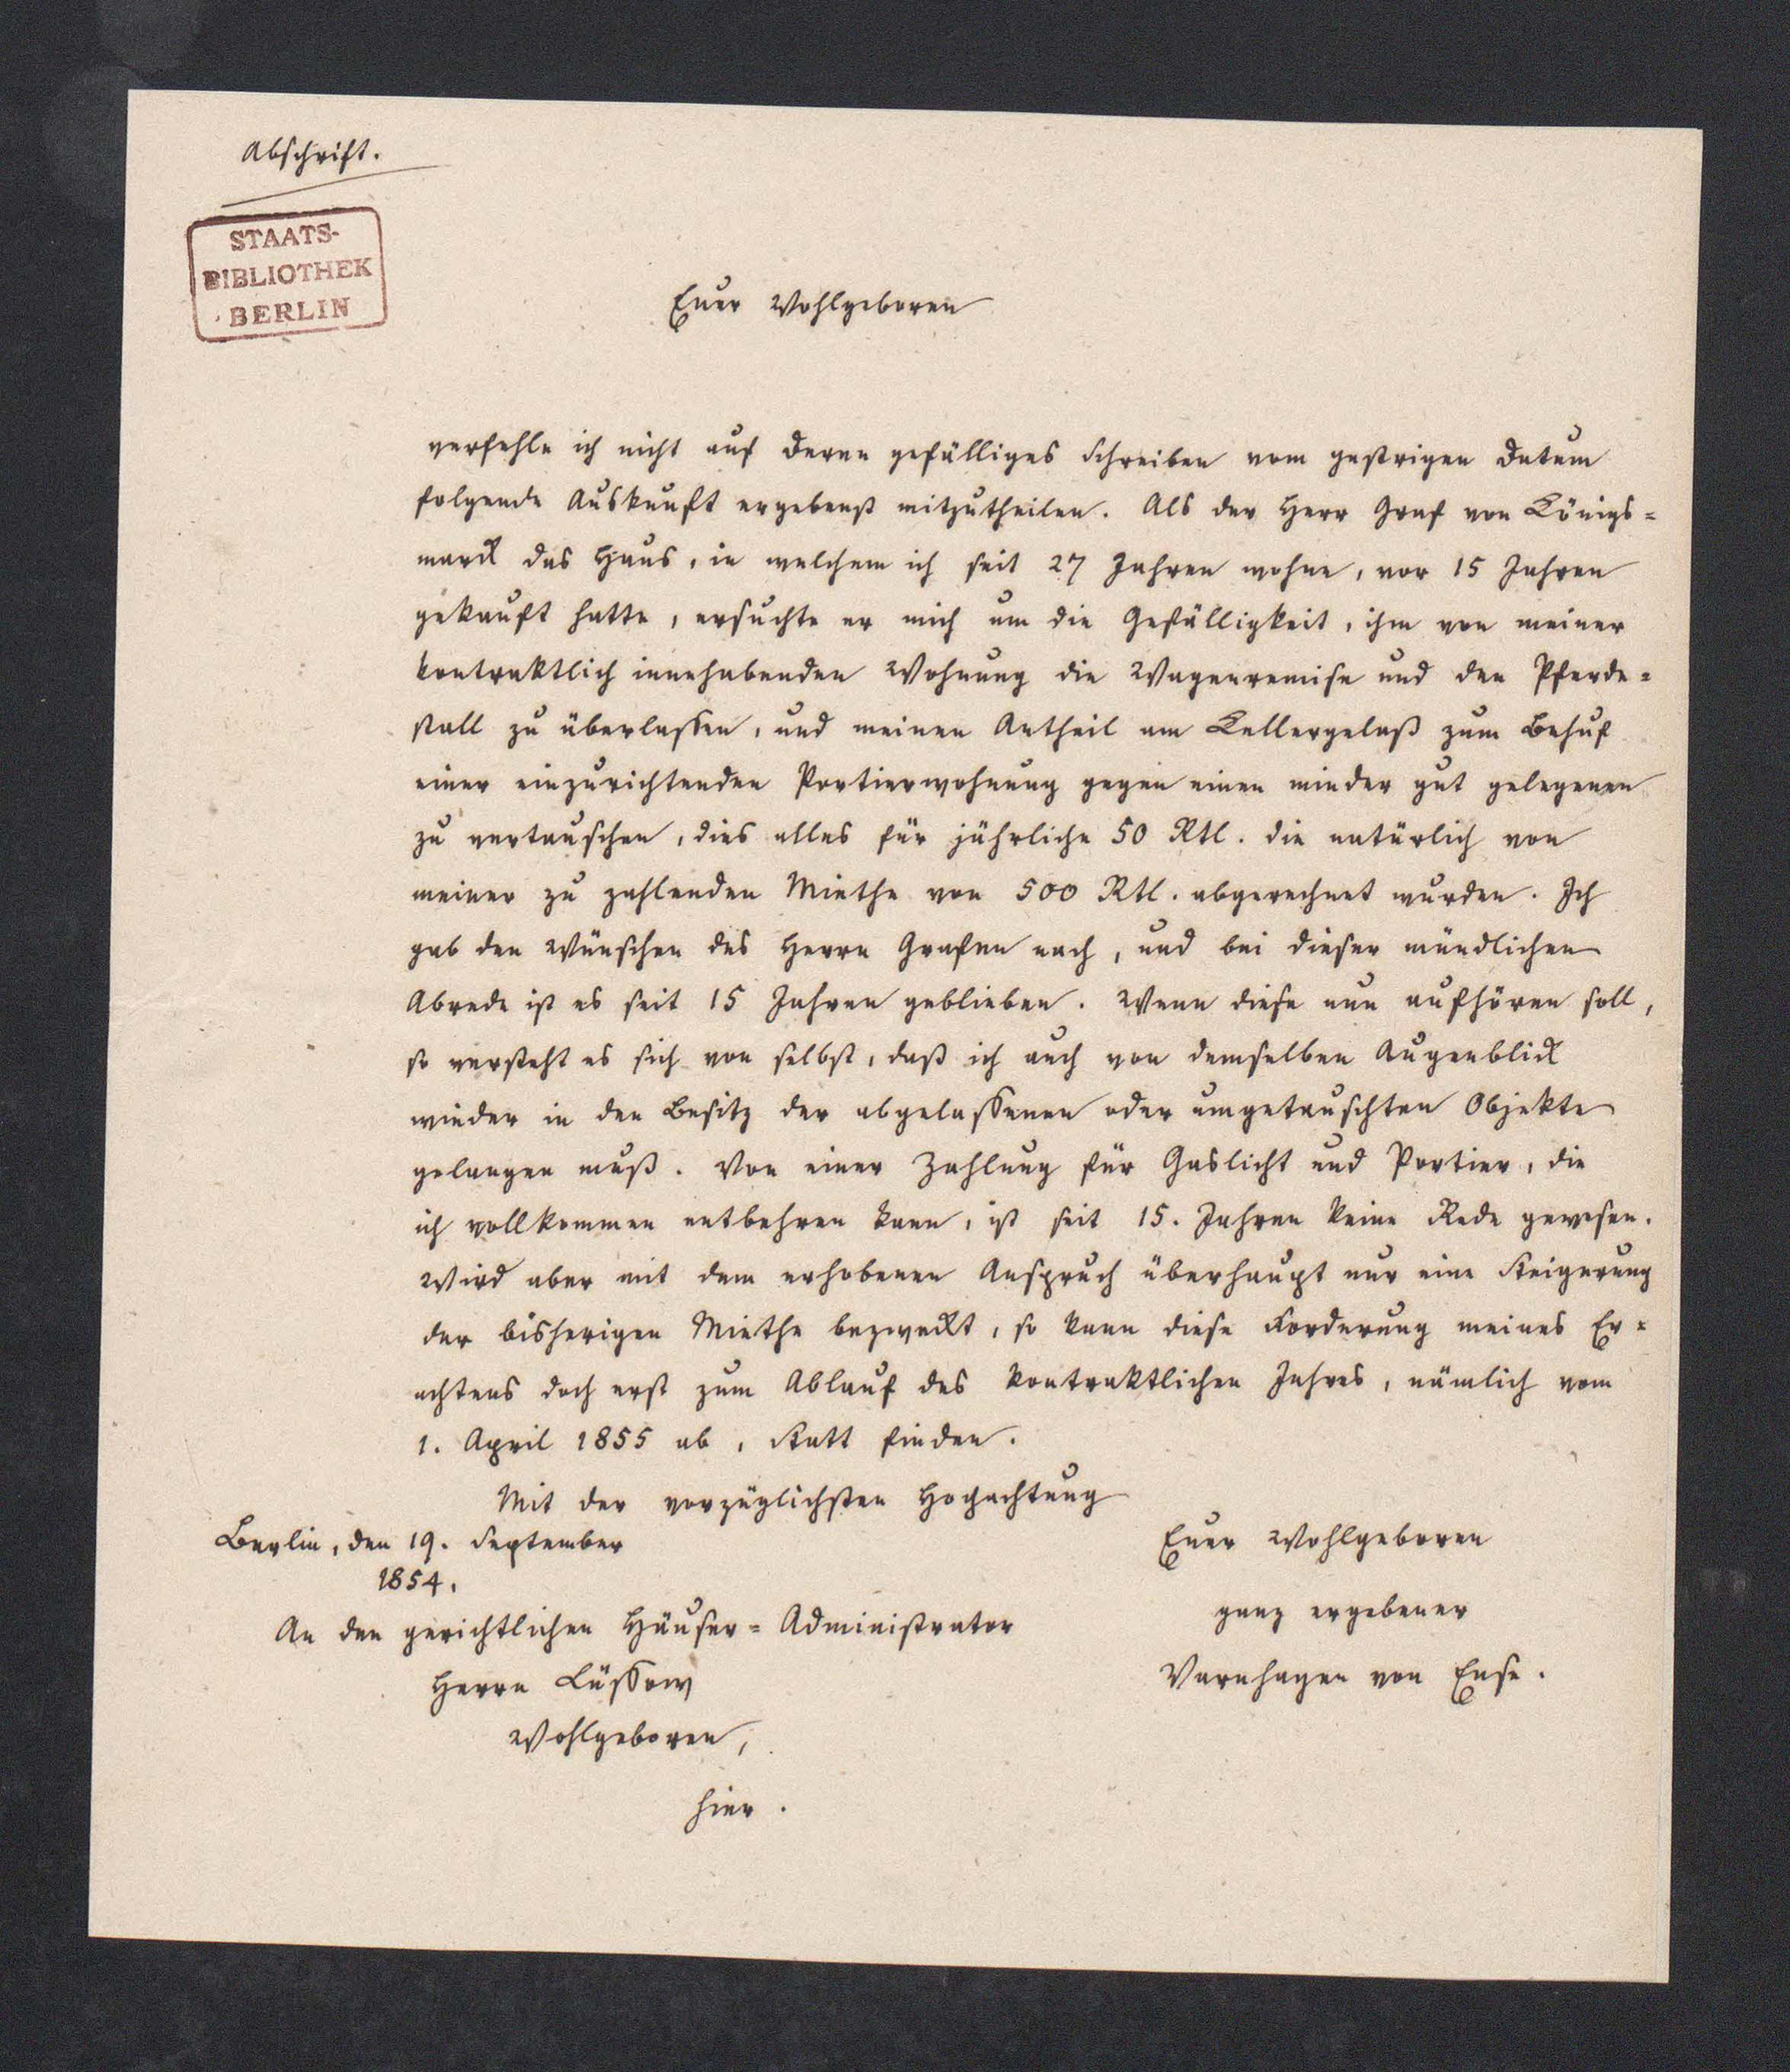 Abschrift.
STAATS-
BIBLIOTHEK
BERLIN
Euer Wohlgeboren
verfehle ich nicht auf deren gefälliges Schreiben vom gestrigen Datum
folgende Auskunft ergebenst mitzutheilen. Als der Herr Graf von Königs=
marck das Haus, in welchem ich seit 27 Jahren wohne, vor 15 Jahren
gekauft hatte, ersuchte er mich um die Gefälligkeit, ihm von meiner
kontraktlich innehabenden Wohnung die Wagenremise und den Pferde=
stall zu überlassen, und meinen Antheil am Kellergelaß zum Behuf
einer einzurichtenden Portierwohnung gegen einen minder gut gelegenen
zu vertauschen, dies alles für jährliche 50 Rtl. die natürlich von
meiner zu zahlenden Miethe von 500 Rtl. abgerechnet wurden. Ich
gab den Wünschen des Herrn Grafen nach, und bei dieser mündlichen
Abrede ist es seit 15 Jahren geblieben. Wenn diese nun aufhören soll,
so versteht es sich von selbst, daß ich auch von demselben Augenblick
wieder in den Besitz der abgelassenen oder umgetauschten Objekte
gelangen muß. Von einer Zahlung für Gaslicht und Portier, die
ich vollkommen entbehren kann, ist seit 15. Jahren keine Rede gewesen.
Wird aber mit dem erhobenen Anspruch überhaupt nur eine Steigerung
der bisherigen Miethe bezweckt, so kann diese Forderung meines Er=
achtens doch erst zum Ablauf des kontraktlichen Jahres, nämlich vom
1. April 1855 ab, Statt finden.
Mit der vorzüglichsten Hochachtung
Berlin, den 19. September
1854.
Euer Wohlgeboren
ganz ergebener
Varnhagen von Ense.
An den gerichtlichen Häuser=Administrator
Herrn Lüssow
Wohlgeboren,
hier.